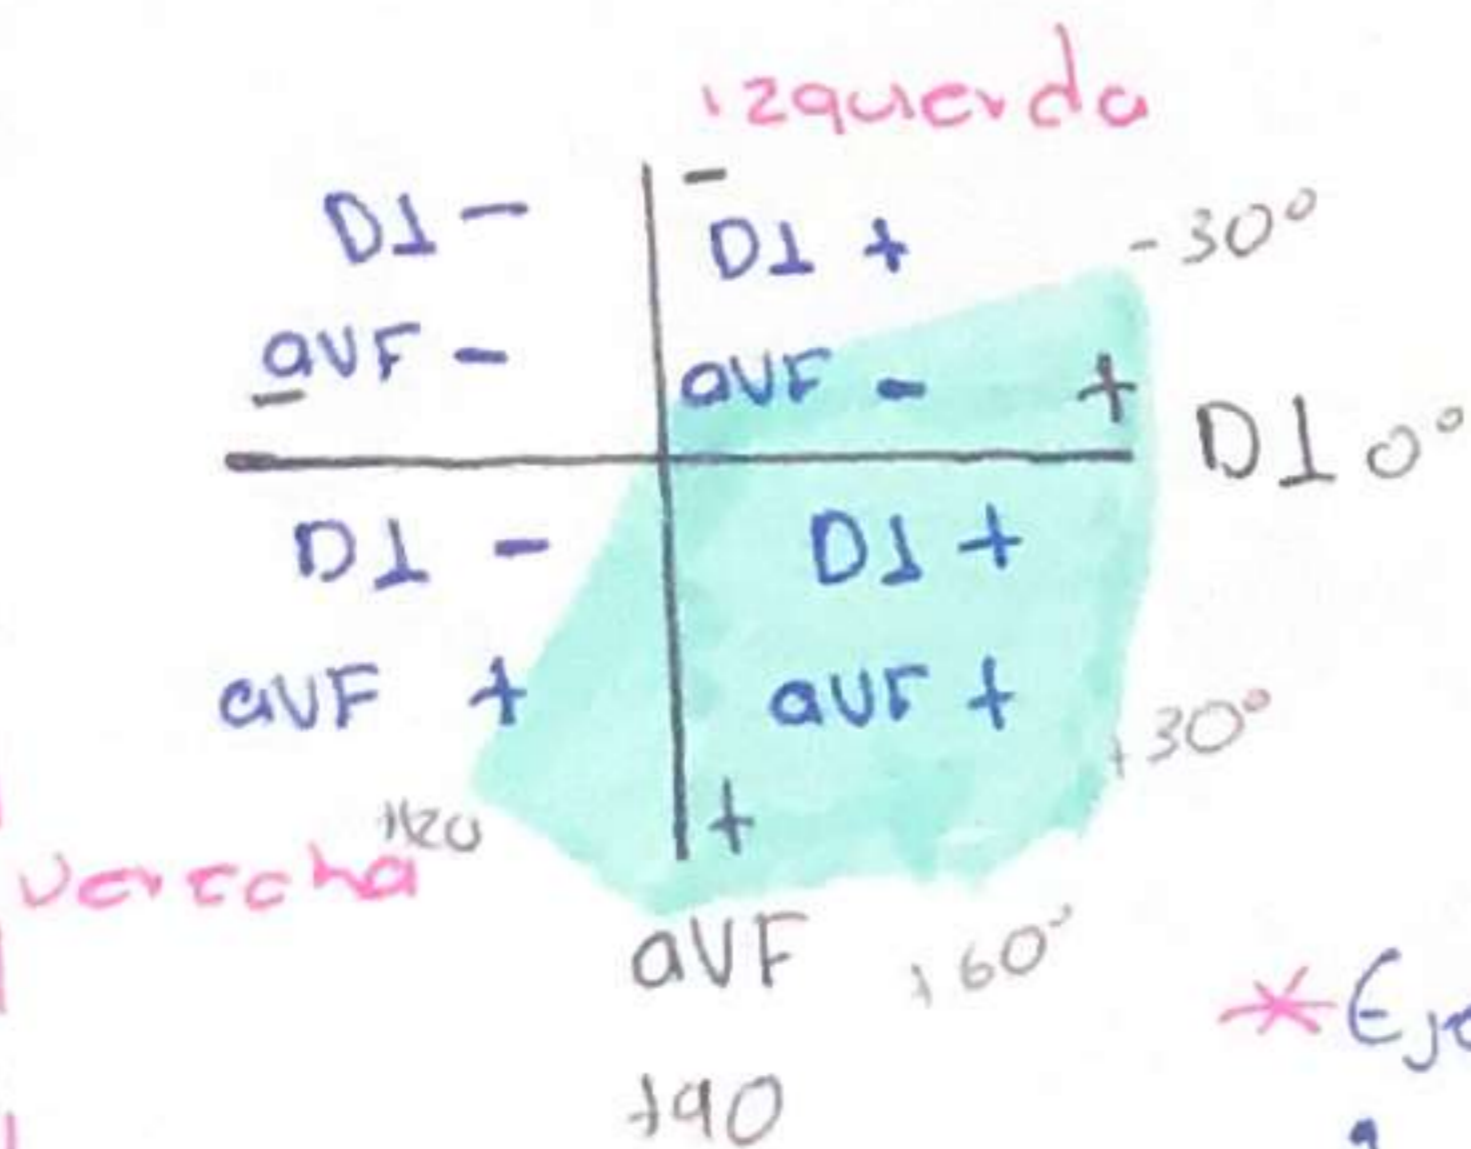 izquierda
-
D1 - D1 + -30°
aVF - aVF - +
- D1 0°
D1 - D1 +
aVF + aVF +
+30°
+
+120
derecha
aVF +60°
+90
* Eje